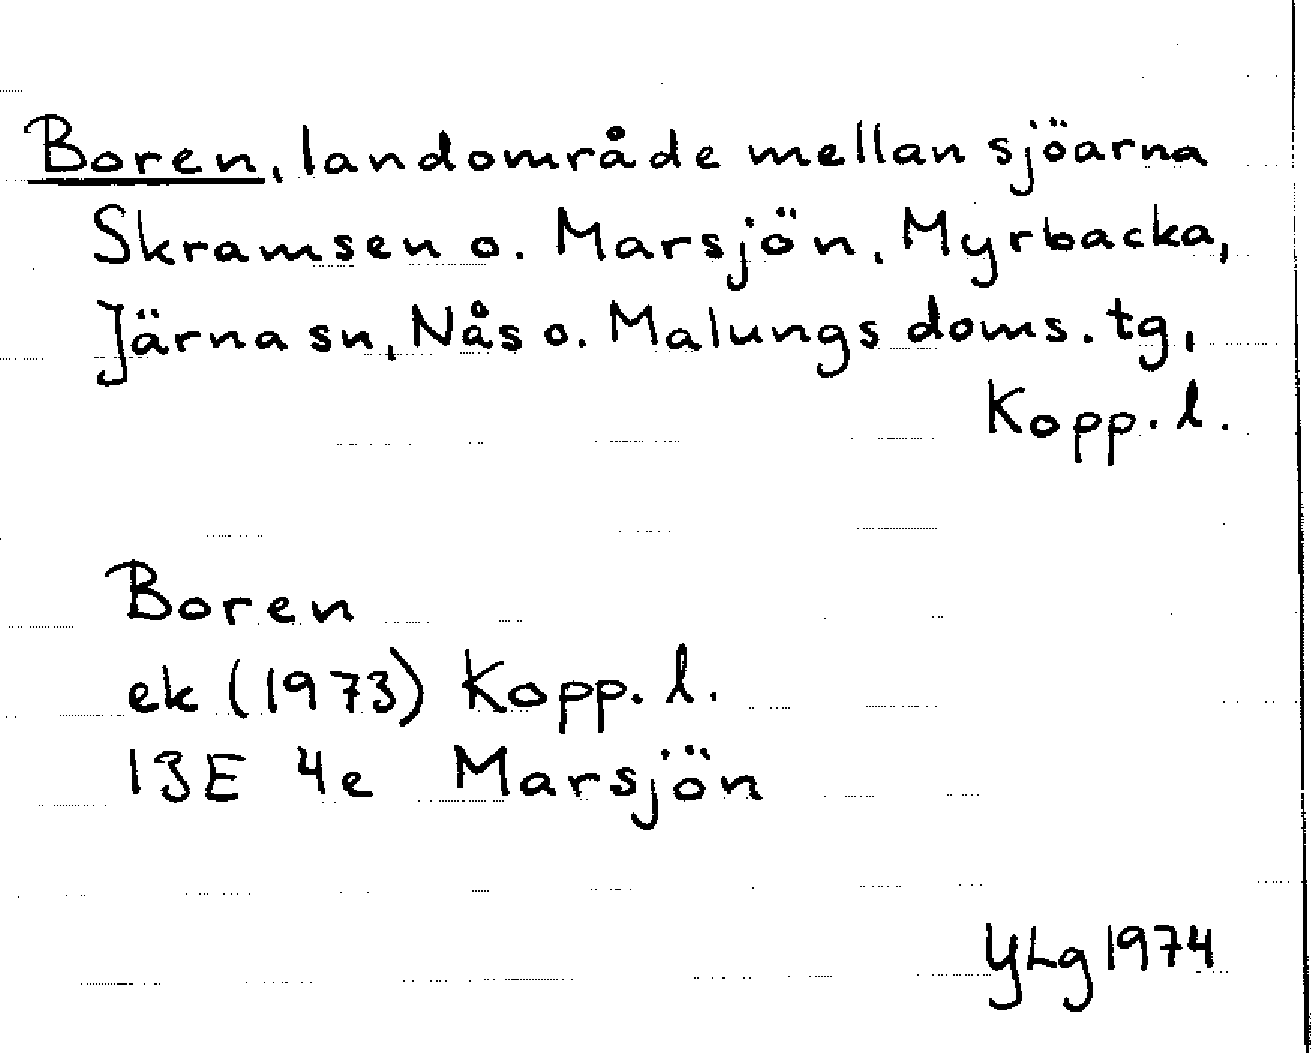 Boren, landområde mellan sjöarna
Skramsen o. Marsjön, Myrbacka,
Järna sn, Nås o. Malungs doms. tg,
Kopp. l.
Boren
ek (1973) Kopp. l.
13E 4e Marsjön
YLg 1974